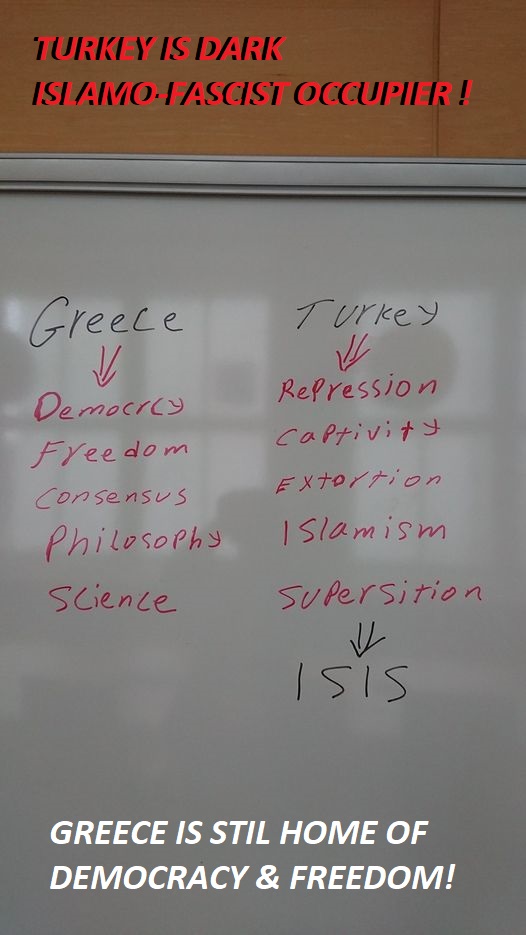 TURKEY IS DARK
ISLAMO-FASCIST OCCUPIER !
Greece
Turkey
⇓
⇓
Democrcy
Repression
Freedom
Captivity
Consensus
Extortion
Philosophy
Islamism
Science
Supersition
⇓
ISIS
GREECE IS STIL HOME OF
DEMOCRACY & FREEDOM!